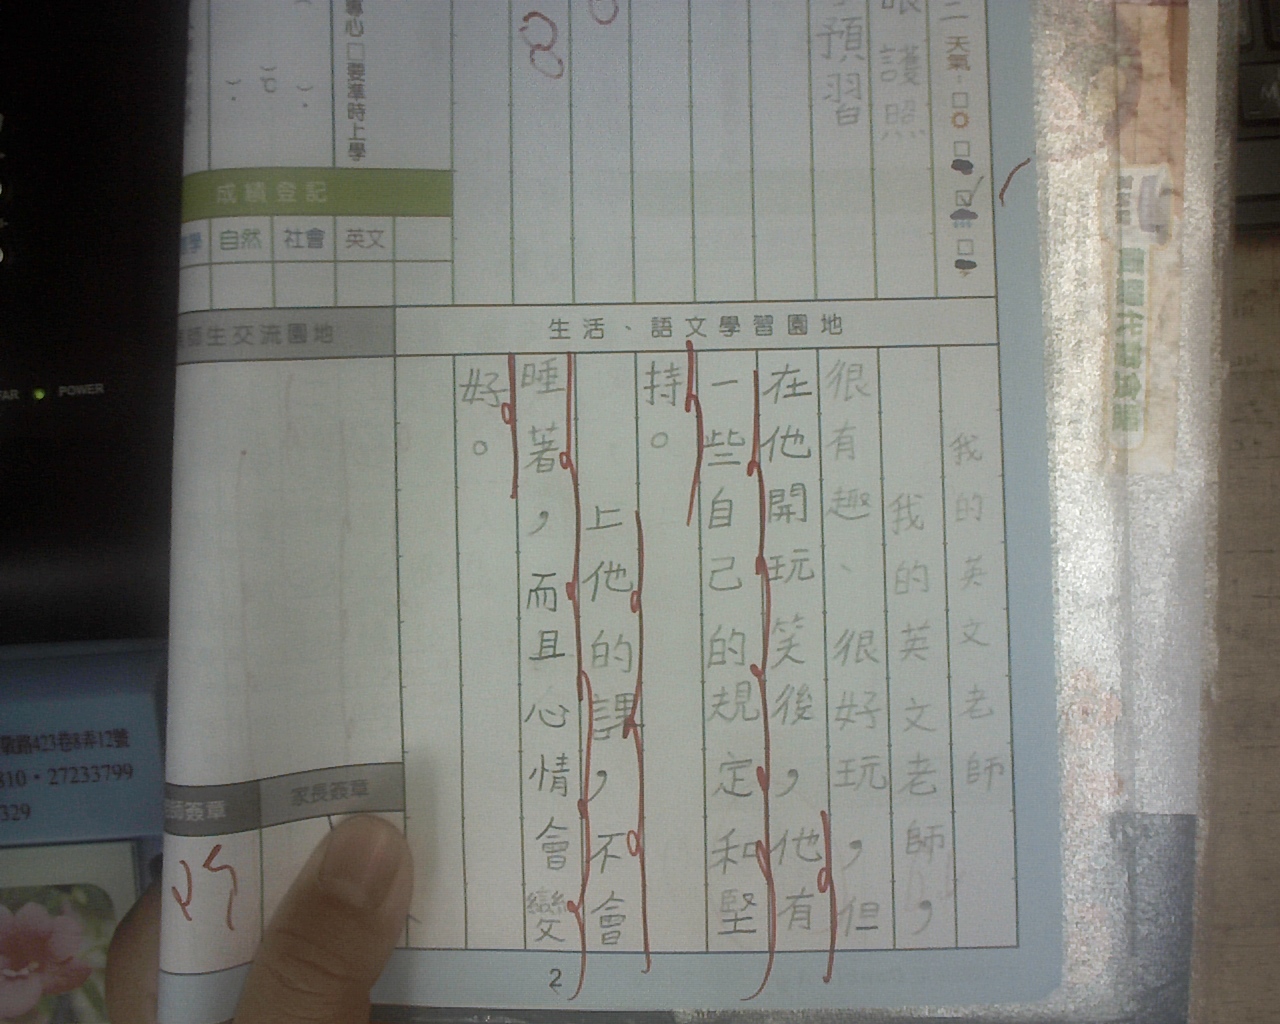 我的英文老師
我的英文老師，
很有趣、很好玩，但
在他開玩笑後，他有
一些自己的規定和堅
持。
上他的課，不會
睡著，而且心情會變
好。
生活、語文學習園地
師生交流園地
天氣：
眼護照
預習
專心□要準時上學
成績登記
自然
社會
英文
家長簽章
師簽章
2
POWER
路423巷8弄12號
810・27233799
329